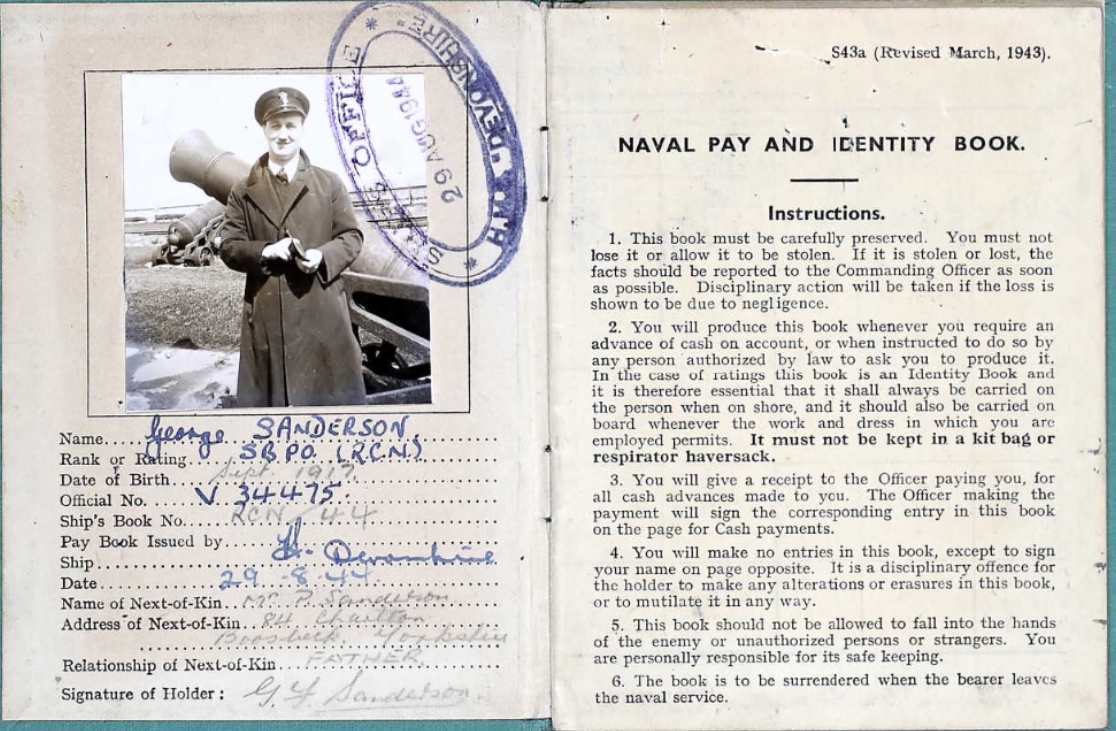 H.M.S. DEVONSHIRE
OFFICE
29 AUG 1944
Name....George SANDERSON
Rank or Rating....SBPO (RCN)
Date of Birth....Sept 1917
Official No....V 34475.
Ship's Book No....RCN / 44
Pay Book Issued by....
Ship....Devonshire
Date....29-8-44
Name of Next-of-Kin....Mr P. Sanderson
Address of Next-of-Kin....84 Charlton
Boosbeck, Yorkshire
Relationship of Next-of-Kin....FATHER.
Signature of Holder: G. F. Sanderson
S43a (Revised March, 1943).
NAVAL PAY AND IDENTITY BOOK.
Instructions.
1. This book must be carefully preserved. You must not
lose it or allow it to be stolen. If it is stolen or lost, the
facts should be reported to the Commanding Officer as soon
as possible. Disciplinary action will be taken if the loss is
shown to be due to negligence.
2. You will produce this book whenever you require an
advance of cash on account, or when instructed to do so by
any person authorized by law to ask you to produce it.
In the case of ratings this book is an Identity Book and
it is therefore essential that it shall always be carried on
the person when on shore, and it should also be carried on
board whenever the work and dress in which you are
employed permits. It must not be kept in a kit bag or
respirator haversack.
3. You will give a receipt to the Officer paying you, for
all cash advances made to you. The Officer making the
payment will sign the corresponding entry in this book
on the page for Cash payments.
4. You will make no entries in this book, except to sign
your name on page opposite. It is a disciplinary offence for
the holder to make any alterations or erasures in this book,
or to mutilate it in any way.
5. This book should not be allowed to fall into the hands
of the enemy or unauthorized persons or strangers. You
are personally responsible for its safe keeping.
6. The book is to be surrendered when the bearer leaves
the naval service.